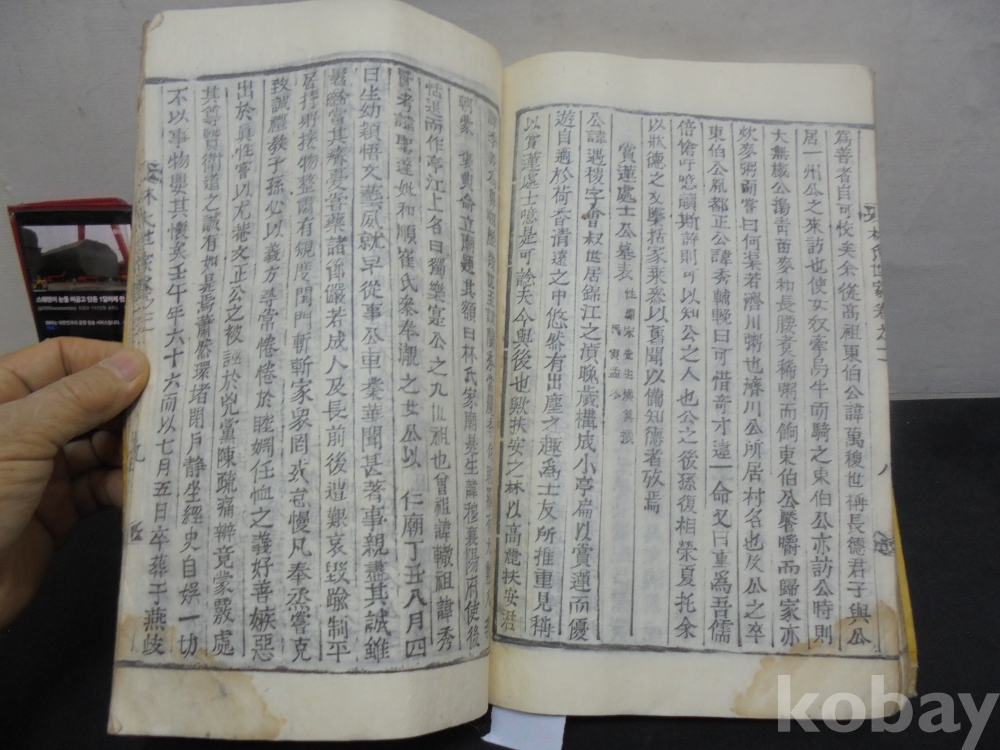 為善者自可恔矣余從高祖東伯公諱萬稷世稱長德君子與公
居一州公之來訪也使女奴牽烏牛而騎之東伯公亦訪公時則
大無歲公搗靑苗麥和長腰煮稀粥而餉東伯公擧嚼而歸家亦
炊麥粥而嘗曰何渠若濟川粥也濟川公所居村名也及公之卒
東伯公胤都正公諱秀輔輓曰可惜奇才違一命又曰重為吾儒
倍愴吁噫斯辭則可以知公之人也公之後孫復相榮夏托余
以狀德之文括家乘忝以舊聞以備知德者攷焉
賞蓮處士公墓表
公諱遇樑字會叔世居錦江之濆晚歲構成小亭扁以賞蓮而優
遊自適於荷香清遠之中悠然有出塵之趣為士友所推重見稱
以賞蓮處士噫是可訟夫今與後也歟扶安之林以高麗扶安君
恬退而作亭江上名曰獨樂寔公之九世祖也曾祖諱轍祖諱秀
賢考諱聖達妣和順崔氏參奉瀜之女公以 仁廟丁壬八月四
日生幼穎悟文藝夙就早從事公車業華聞甚著事親盡其誠雖
嘗其癠憂嘗藥諸節儼若成人及長前後遭艱哀毀踰制平
居持身接物整肅有規度閨門斬斬家衆罔或怠慢凡奉烝嘗克
致誠禮敎子孫必以義方尋常惓惓於睦婣任恤之義好善嫉惡
出於眞性嘗以尤菴文正公之被誣於兇黨陳疏痛辨竟蒙竄處
其尊賢衛道之誠有如是焉蕭然環堵閉戶靜坐經史自娛一切
不以事物嬰其懷矣壬午年六十六而以七月五日卒葬于燕岐
kobay